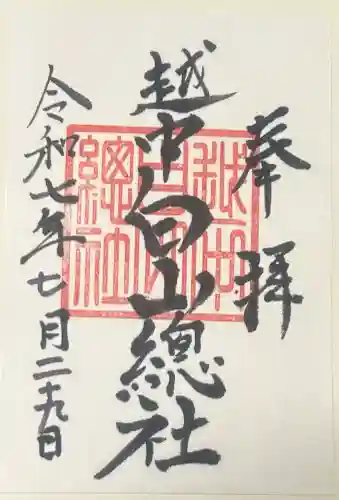 奉拝
越中白山總社
令和七年七月二十九日
越中
白山
總社